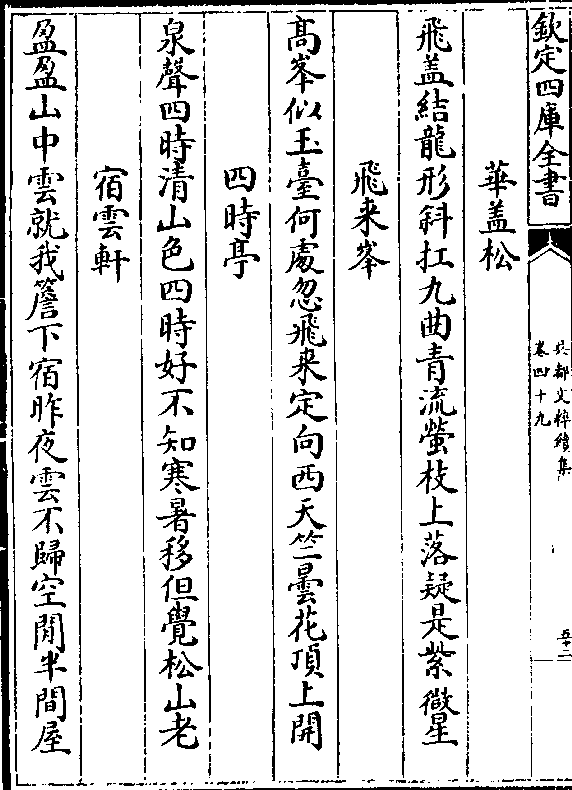 欽定四庫全書
吳都文粹續集
卷四十九
五十二
華盖松
飛盖結龍形斜扛九曲青流螢枝上落疑是紫微星
飛来峯
高峯似玉臺何處忽飛来定向西天竺曇花頂上開
四時亭
泉聲四時清山色四時好不知寒暑移但覺松山老
宿雲軒
盈盈山中雲就我簷下宿昨夜雲不歸空閒半間屋